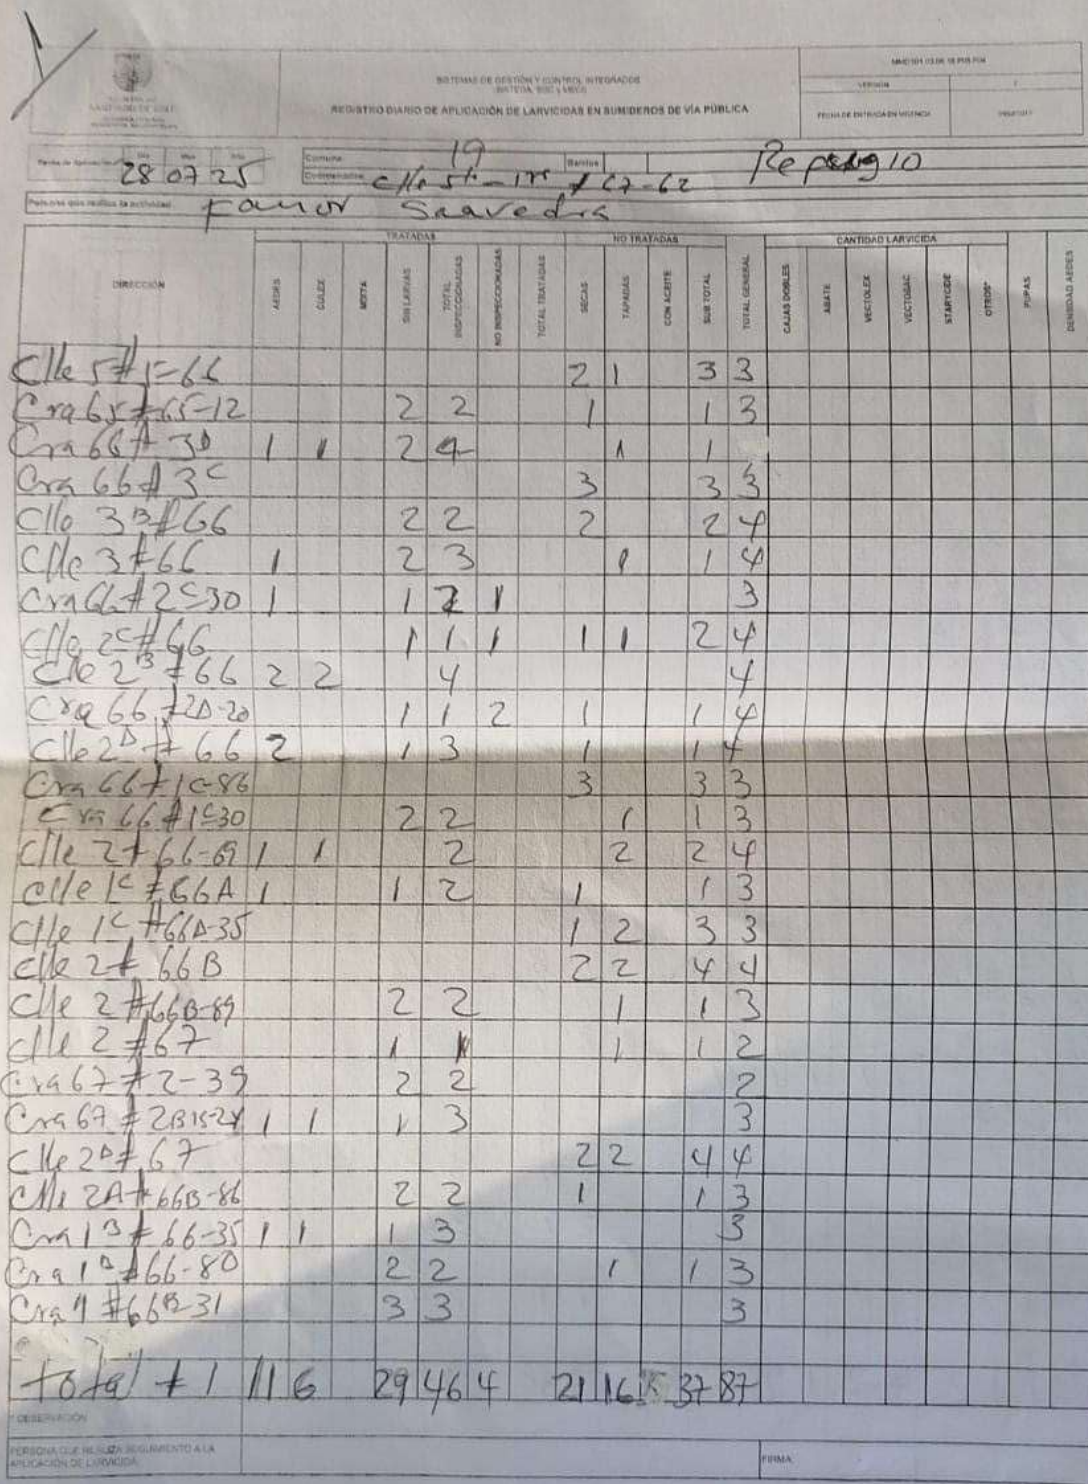 SISTEMAS DE GESTIÓN Y CONTROL INTEGRADOS
REGISTRO DIARIO DE APLICACIÓN DE LARVICIDAS EN SUMIDEROS DE VÍA PÚBLICA
VERSIÓN
FECHA DE ENTRADA EN VIGENCIA
28 07 25
Comuna 19 Barrios
Persona que realiza la actividad Fanor Saavedra
TRATADAS NO TRATADAS CANTIDAD LARVICIDA
DIRECCIÓN AEDES CULEX MIXTA SIN LARVAS TOTAL INSPECCIONADAS NO INSPECCIONADAS TOTAL TRATADAS SECAS TAPADAS CON ACEITE SUB TOTAL TOTAL GENERAL CAJAS DOBLES ABATE VECTOLEX VECTOBAC STARYCIDE OTROS* PUPAS DENSIDAD AEDES
Clle 5 # 1=66 2 1 3 3
Cra 65 # 65-12 2 2 1 1 3
Cra 66 # 3D 1 1 2 4 1 1
Cra 66 # 3C 3 3 3
Clle 3B # 66 2 2 2 2 4
Clle 3 # 66 1 2 3 1 1 4
Cra 66 # 2C-30 1 1 2 1 3
Clle 2C # 66 1 1 1 1 1 2 4
Clle 2B # 66 2 2 4 4
Cra 66 # 2A-20 1 1 2 1 1 4
Clle 2A # 66 2 1 3 1 1 4
Cra 66 # 1C-86 3 3 3
Cra 66 # 1C-30 2 2 1 1 3
Clle 2 # 66-69 1 1 2 2 2 4
Clle 1C # 66A 1 1 2 1 1 3
Clle 1C # 66A-35 1 2 3 3
Clle 2 # 66B 2 2 4 4
Clle 2 # 66B-89 2 2 1 1 3
Clle 2 # 67 1 1 1 1 2
Cra 67 # 2-39 2 2 2
Cra 67 # 1 1 1 3 3
Clle 2A # 67 2 2 4 4
Clle 2A # 66B-86 2 2 1 1 3
Cra 1B # 66-35 1 1 1 3 3
Cra 1B # 66-80 2 2 1 1 3
Cra 1 # 66B-31 3 3 3
total # 1 11 6 29 46 4 21 16 37 87
* OBSERVACIÓN
PERSONA QUE REALIZA SEGUIMIENTO A LA APLICACIÓN DE LARVICIDA FIRMA: